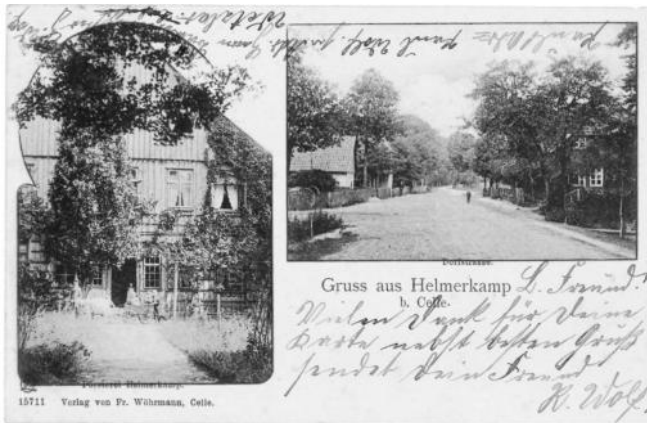 Paul Wolf
Dorfstrasse.
Gruss aus Helmerkamp
b. Celle.
L. Freund!
Vielen Dank für Deine
Karte nebst besten Gruß
sendet Dein Freund
R. Wolf.
Försterei Helmerkamp.
15711 Verlag von Fr. Wöhrmann, Celle.